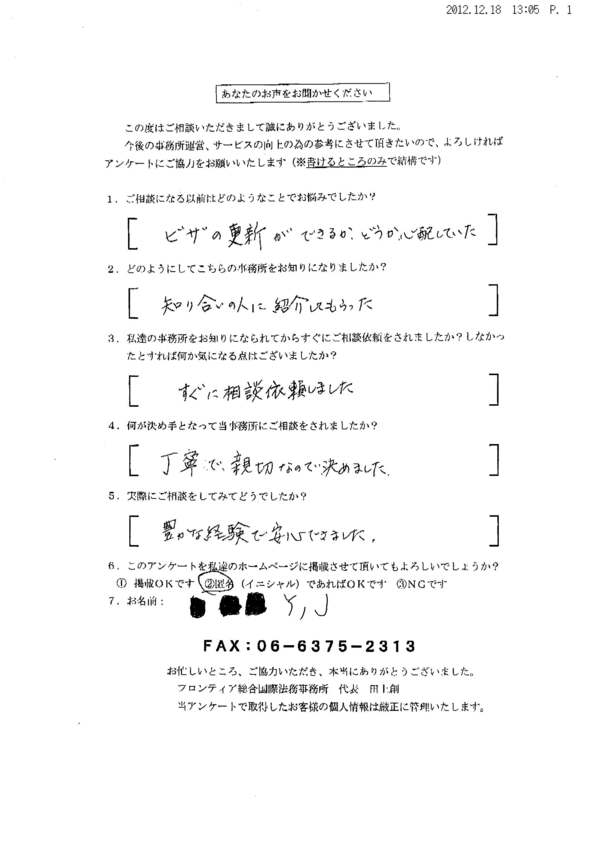 2012.12.18 13:05 P. 1
あなたのお声をお聞かせください
この度はご相談いただきまして誠にありがとうございました。
今後の事務所運営、サービスの向上の為の参考にさせて頂きたいので、よろしければ
アンケートにご協力をお願いいたします（※書けるところのみで結構です）
1．ご相談になる以前はどのようなことでお悩みでしたか？
ビザの更新ができるか、どうか心配していた
2．どのようにしてこちらの事務所をお知りになりましたか？
知り合いの人に紹介してもらった
3．私達の事務所をお知りになられてからすぐにご相談依頼をされましたか？しなかっ
たとすれば何か気になる点はございましたか？
すぐに相談依頼しました
4．何が決め手となって当事務所にご相談をされましたか？
丁寧で、親切なので決めました。
5．実際にご相談をしてみてどうでしたか？
豊かな経験で安心できました。
6．このアンケートを私達のホームページに掲載させて頂いてもよろしいでしょうか？
① 掲載OKです ②匿名（イニシャル）であればOKです ③NGです
7．お名前： Y,J
FAX：06－6375－2313
お忙しいところ、ご協力いただき、本当にありがとうございました。
フロンティア総合国際法務事務所 代表 田上創
当アンケートで取得したお客様の個人情報は厳正に管理いたします。